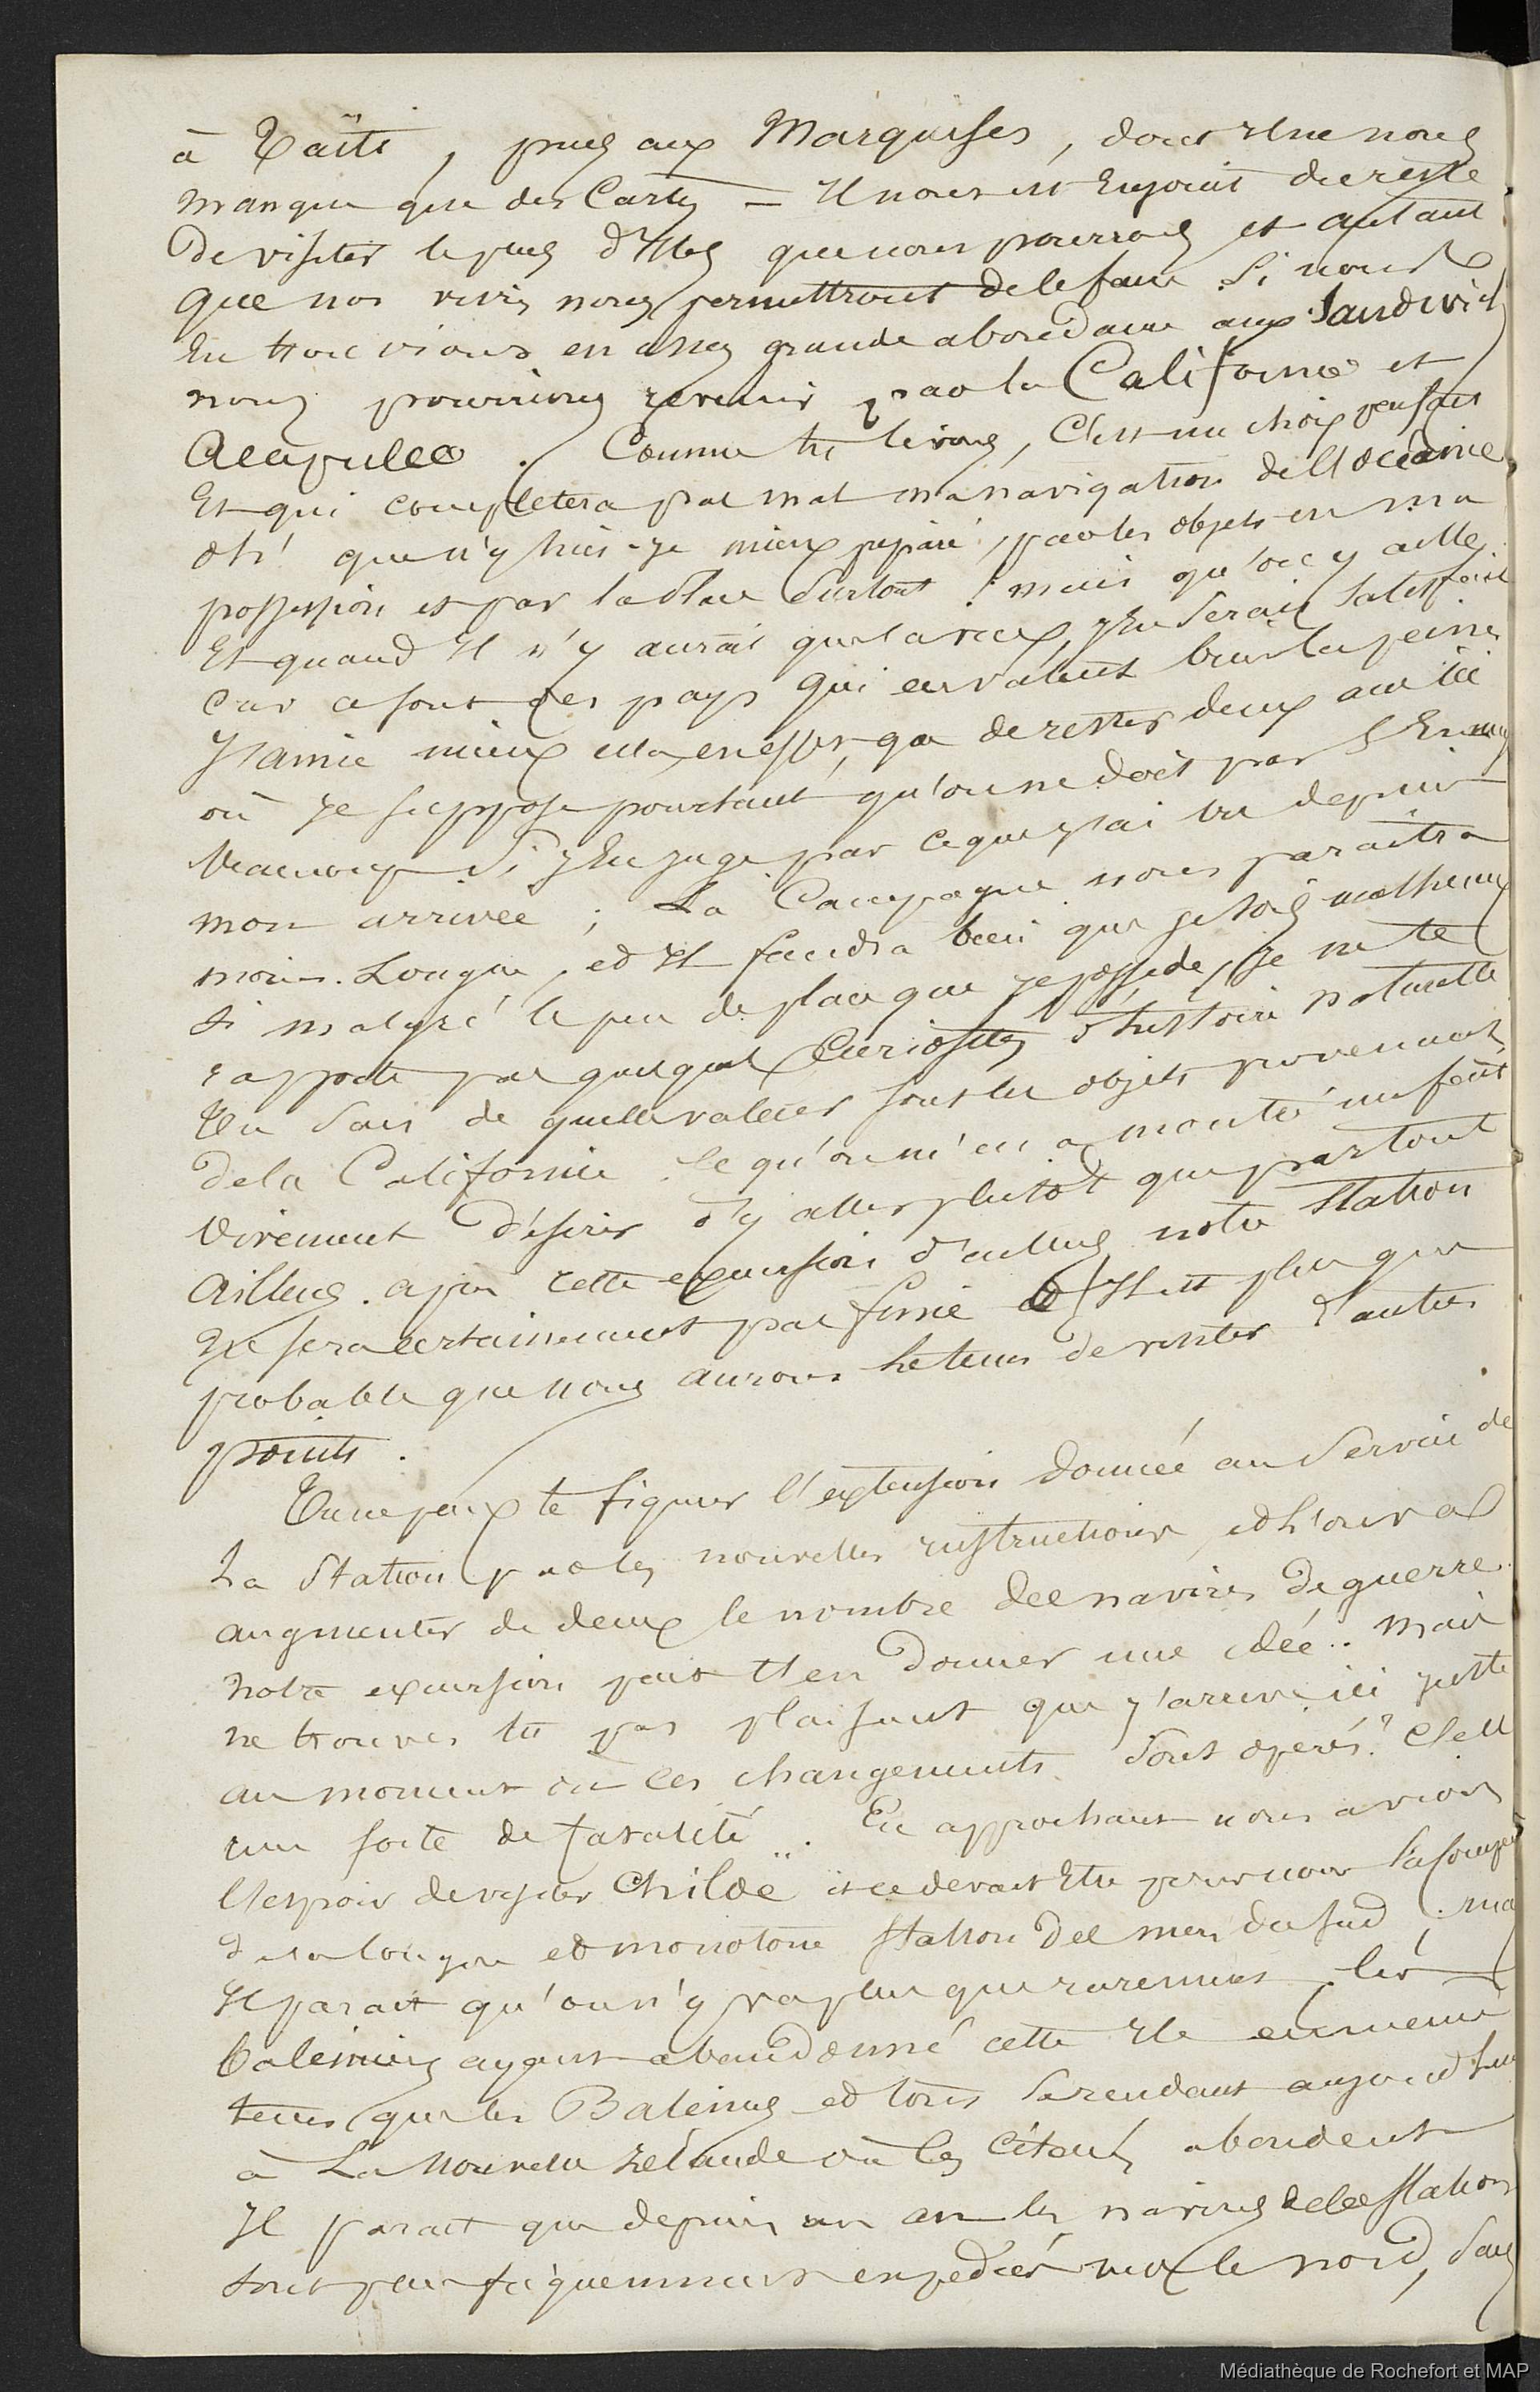 à Taïti, puis aux Marquises, dont Il ne nous
manque que des Cartes = Il nous est Enjoint du reste
De visiter le plus d'Iles que nous pourrons et autant
que nos vivres nous permettront de le faire. Si nous
En trouvions en assez grande abondance aux Sandwich
nous pourrions revenir par la Californie et
Acapulco. Comme tu le vois, C'est un choix parfait
Et qui completera pas mal ma navigation de l'océanie
oh! que n'y suis-je mieux préparé, par les objets en ma
possession et par la place surtout! mais qu'on y aille,
Et quand Il n'y aurait que la vue, j'En serais satisfait
car ce sont des pays qui en valent bien la peine
J'aime mieux cela, en effet, que de rester deux ans ici
où je suppose pourtant qu'on ne doit pas s'Ennuyer
beaucoup si j'En juge par ce que j'ai vu depuis
mon arrivée; La Campagne nous paraîtra
moins Longue, et Il faudra bien que je sois malheureux
si malgré le peu de place que je possède, je ne te
rapporte pas quelques Curiosités d'histoire naturelle
Tu sais de quelle valeur sont les objets provenant
de la Californie. Ce qu'on m'en a montré me fait
vivement désirer d'y aller plutôt que partout
ailleurs. après cette excursion d'ailleurs notre station
Ne sera certainement pas finie et Il est plus que
probable que nous aurons le tems de visiter d'autres
points.
Tu ne peux te figurer l'extension donnée au service de
La Station par les nouvelles instructions, et l'on va
augmenter de deux le nombre des navires de guerre.
Notre excursion peut t'en donner une idée.. Mais
ne trouves tu pas plaisant que j'arrive ici juste
au moment où ces changements sont opérés? C'est
une sorte de fatalité. En approchant nous avions
l'espoir de visiter Chiloë et ce devait Etre pour nous
de la longue et monotone station des mers du sud;
Il parait qu'on n'y va plus que rarement, les
baleiniers ayant abandonné cette Ile en même
tems que les Baleines et tous se rendant aujourd'hui
à La Nouvelle Zélande où les Cétacés abondent
Il parait que depuis un an les navires de la station
sont plus fréquemment expédiés vers le nord, sans